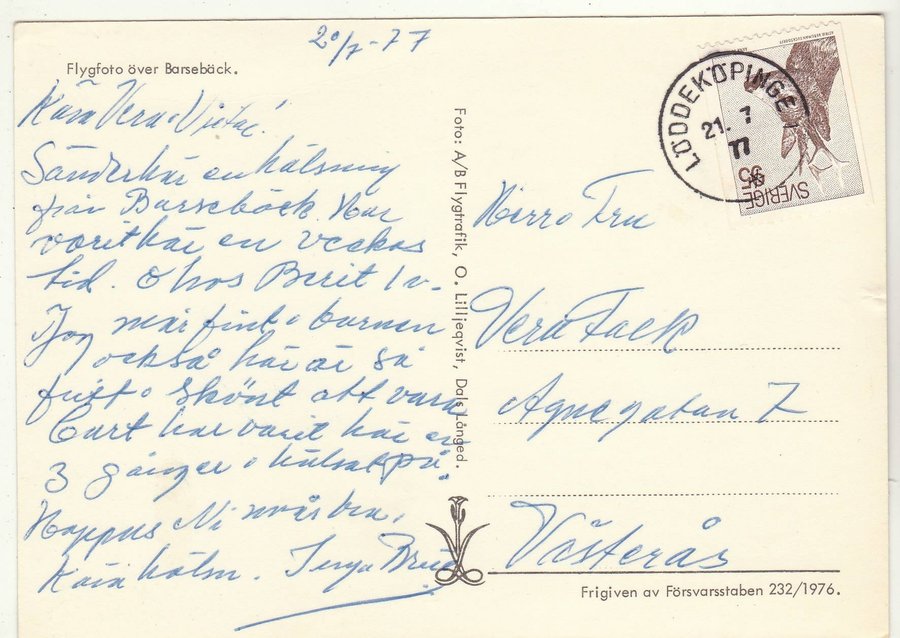 20/7-77
Flygfoto över Barsebäck.
Kära Vera o
Sänder här en hälsning
från Barsebäck Har
varit här en veckas
tid. o hos Berit 1 v-
Jag mår fint o barnen
också här är så
fritt o skönt att vara
Curt har varit här en
3 gånger o hälsat på.
Hoppas Ni mår bra.
Kära hälsn.
Foto: A/B Flygtrafik, O. Lilljeqvist, Dals Långed.
LÖDDEKÖPINGE 1
21. 7
77
SVERIGE
95
Herr o Fru
Vera Falk
Agnegatan 7
Västerås
Frigiven av Försvarsstaben 232/1976.